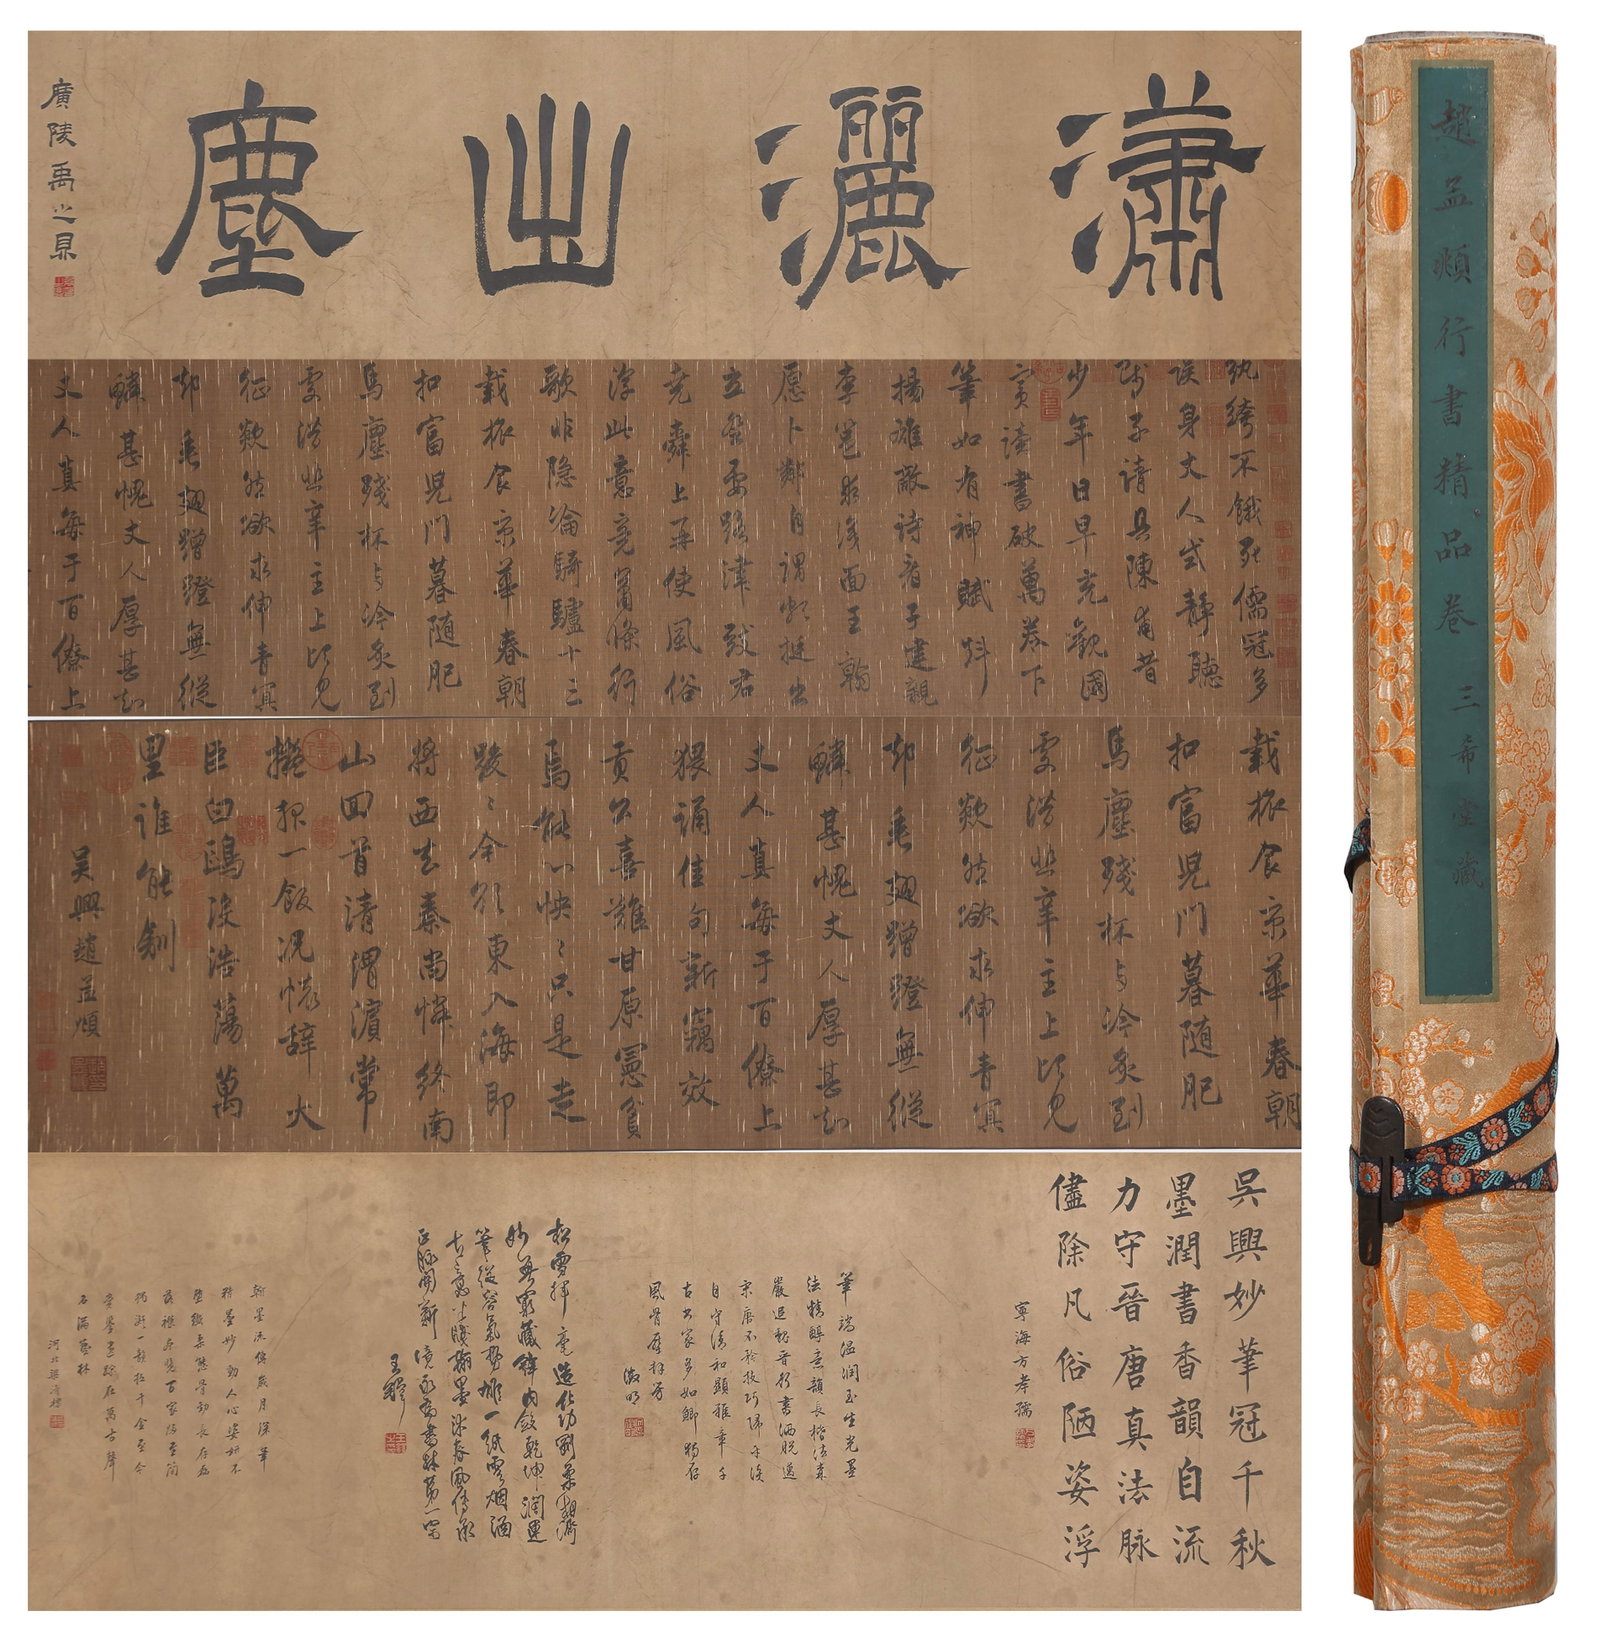 瀟灑出塵
廣陵禹之鼎
紈袴不餓死儒冠多
誤身丈人試靜聽
賤子請具陳甫昔
少年日早充觀國
賓讀書破萬卷下
筆如有神賦料
揚雄敵詩看子建親
李邕求識面王翰
愿卜鄰自謂頗挺出
立登要路津致君
堯舜上再使風俗
淳此意竟蕭條行
歌非隐淪騎驢十三
載旅食京華春朝
扣富児門暮随肥
馬塵殘杯与冷炙到
處潛悲辛主上頃見
征歘然欲求伸青冥
却垂翅蹭蹬無縱
鱗甚愧丈人厚甚知
丈人真每于百僚上
載旅食京華春朝
扣富児門暮随肥
馬塵殘杯与冷炙到
處潛悲辛主上頃見
征歘然欲求伸青冥
却垂翅蹭蹬無縱
鱗甚愧丈人厚甚知
丈人真每于百僚上
猥誦佳句新竊效
貢公喜難甘原憲貧
焉能心怏〻只是走
踆〻今欲東入海即
將西去秦尚憐終南
山回首清渭濱常
擬报一飯况懷辞大
臣白鷗没浩蕩萬
里谁能馴
吴興趙孟頫
吳興妙筆冠千秋
墨潤書香韻自流
力守晉唐真法脉
儘除凡俗陋姿浮
寧海方孝孺
筆端温润玉生光墨
法精醇意韻長楷法森
嚴追魏晋行書洒脱邁
宋唐不矜技巧归平淡
自守清和顯雅章千
古书家多如鲫独存
風骨歷移芳
徵明
松雪揮毫造化功剛柔相濟
妙無窮藏鋒内斂乾坤润運
筆従容氣勢雄一紙雲烟涵
古意半牋翰墨沐春風傳承
正脉開新境永为書林第一宗
王穉
翰墨流傳歲月深筆
精墨妙動人心姿妍不
堕纖柔態骨劲長存
名滿藝林
河北梁清標
趙孟頫行書精品卷 三希堂藏